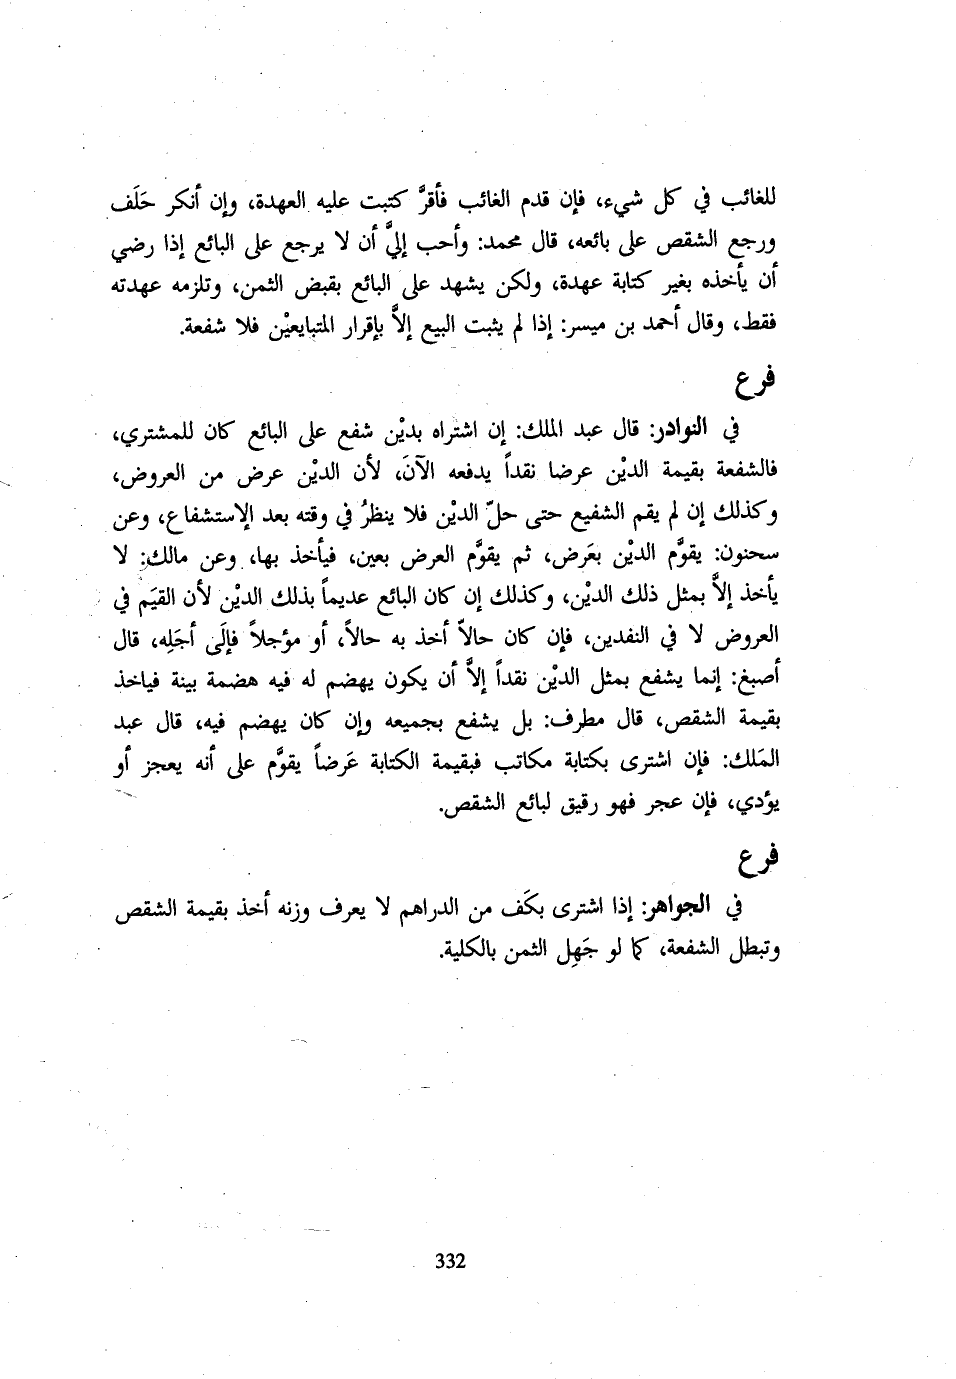 للغائب في كل شيء، فإن قدم الغائب فأقرَّ كتبت عليه العهدة، وإن أنكر حَلَف
ورجع الشقص على بائعه، قال محمد: وأحب إليَّ أن لا يرجع على البائع إذا رضي
أن يأخذه بغير كتابة عهدة، ولكن يشهد على البائع بقبض الثمن، وتلزمه عهدته
فقط، وقال أحمد بن ميسر: إذا لم يثبت البيع إلاَّ بإقرار المتبايعيْن فلا شفعة.
فرع
في النوادر: قال عبد الملك: إن اشتراه بديْن شفع على البائع كان للمشتري،
فالشفعة بقيمة الديْن عرضا نقداً يدفعه الآنَ، لأن الديْن عرض من العروض،
وكذلك إن لم يقم الشفيع حتى حلّ الديْن فلا ينظرُ في وقته بعد الإستشفاع، وعن
سحنون: يقوَّم الديْن بعَرض، ثم يقوَّم العرض بعين، فيأخذ بها، وعن مالك: لا
يأخذ إلاَّ بمثل ذلك الديْن، وكذلك إن كان البائع عديماً بذلك الديْن لأن القيَم في
العروض لا في النفدين، فإن كان حالاً أخذ به حالاً، أو مؤجلاً فإلَى أجَلِه، قال
أصبغ: إنما يشفع بمثل الديْن نقداً إلاَّ أن يكون يهضم له فيه هضمة بينة فياخذ
بقيمة الشقص، قال مطرف: بل يشفع بجميعه وإن كان يهضم فيه، قال عبد
المَلك: فإن اشترى بكتابة مكاتب فبقيمة الكتابة عَرضاً يقوَّم على أنه يعجز أو
يؤدي، فإن عجر فهو رقيق لبائع الشقص.
فرع
في الجواهر: إذا اشترى بكَف من الدراهم لا يعرف وزنه أخذ بقيمة الشقص
وتبطل الشفعة، كما لو جَهِل الثمن بالكلية.
332